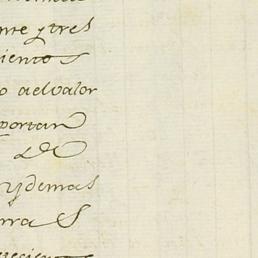 nte y tres
ientos
o del valor
portan
de
y demas
rra S